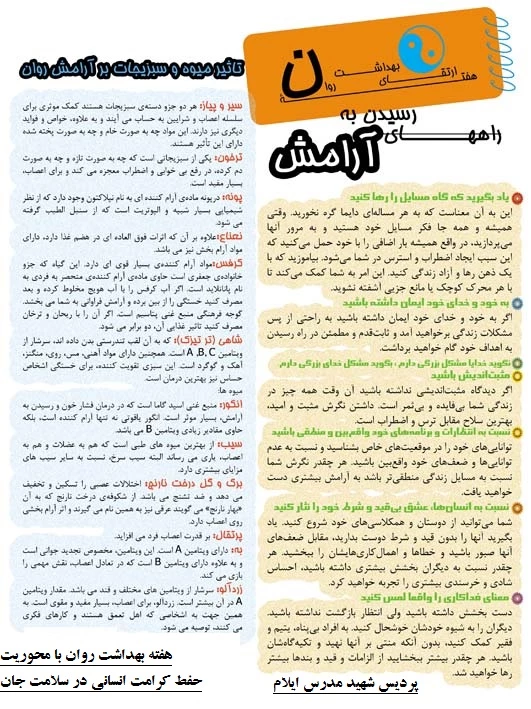 هفتـه
ارتقـــای
بهداشـت
روان
ن
راههــــــای
رسیدن به
آرامش
یاد بگیرید که گاه مسایل را رها کنید
این به آن معناست که به هر مساله‌ای دایما گره نخورید. وقتی
همیشه و همه جا فکر مسایل خود هستید و به مرور آنها
می‌پردازید، در واقع همیشه بار اضافی را با خود حمل می‌کنید که
این سبب ایجاد اضطراب و استرس در شما می‌شود. بیاموزید که با
یک ذهن رها و آزاد زندگی کنید. این امر به شما کمک می‌کند تا
با هر محرک کوچک یا مانع جزیی آشفته نشوید.
به خود و خدای خود ایمان داشته باشید
اگر به خود و خدای خود ایمان داشته باشید به راحتی از پس
مشکلات زندگی برخواهید آمد و ثابت‌قدم و مطمئن در راه رسیدن
به اهداف خود گام خواهید برداشت.
نگوید خدایا مشکل بزرگی دارم ، بگوید مشکل خدای بزرگی دارم.
مثبت‌اندیش باشید
اگر دیدگاه مثبت‌اندیشی نداشته باشید آن وقت همه چیز در
زندگی شما بی‌فایده و بی‌ثمر است. داشتن نگرش مثبت و امید،
بهترین سلاح مقابل ترس و اضطراب است.
نسبت به انتظارات و برنامه‌های خود واقع‌بین و منطقی باشید
توانایی‌های خود را در موقعیت‌های خاص بشناسید و نسبت به عدم
توانایی‌ها و ضعف‌های خود واقع‌بین باشید. هر چقدر نگرش شما
نسبت به مسایل زندگی منطقی‌تر باشد به آرامش بیشتری دست
خواهید یافت.
نسبت به انسان‌ها، عشق بی‌قید و شرط خود را نثار کنید
شما می‌توانید از دوستان و همکلاسی‌های خود شروع کنید. یاد
بگیرید آنها را بدون قید و شرط دوست بدارید، مقابل ضعف‌های
آنها صبور باشید و خطاها و اهمال‌کاری‌هایشان را ببخشید. هر
چقدر نسبت به دیگران بخشش بیشتری داشته باشید، احساس
شادی و خرسندی بیشتری را تجربه خواهید کرد.
معنای فداکاری را واقعا لمس کنید
دست بخشش داشته باشید ولی انتظار بازگشت نداشته باشید.
دیگران را به شیوه خودشان خوشحال کنید. به افراد بی‌پناه، یتیم و
فقیر کمک کنید، بدون آنکه منتی بر آنها نهید و تکیه‌گاه‌شان
باشید. هر چقدر بیشتر ببخشایید از الزامات و قید و بندها بیشتر
رها خواهید شد.
پردیس شهید مدرس ایلام
تاثیر میوه و سبزیجات بر آرامش روان
سیر و پیاز: هر دو جزو دسته‌ی سبزیجات هستند کمک موثری برای
سلسله اعصاب و شرایین به حساب می آیند و به علاوه، خواص و فواید
دیگری نیز دارند. این مواد چه به صورت خام و چه به صورت پخته شده
دارای این تأثیر هستند.
ترخون: یکی از سبزیجاتی است که چه به صورت تازه و چه به صورت
دم کرده، در رفع بی خوابی و اضطراب معجزه می کند و برای اعصاب،
بسیار مفید است.
پونه: درپونه ماده‌ی آرام کننده ای به نام نپلاکتون وجود دارد که از نظر
شیمیایی بسیار شبیه و الپوتریت است که از سنبل الطیب گرفته
می شود.
نعناع:علاوه بر آن که اثرات فوق العاده ای در هضم غذا دارد، دارای
مواد آرام بخش نیز می باشد.
کرفس:مواد آرام کننده‌ی بسیار قوی ای دارد. این گیاه که جزو
خانواده‌ی جعفری است حاوی ماده‌ی آرام کننده‌ی منحصر به فردی به
نام پاتانلاید است. اگر آب کرفس را با آب هویج مخلوط کرده و بعد
مصرف کنید خستگی را از بین برده و آرامش فراوانی به شما می بخشد.
گوجه فرهنگی منبع غنی پتاسیم است. اگر آن را با ریحان و ترخان
مصرف کنید تاثیر غذایی آن، دو برابر می شود.
شاهی (تر تیزک): که به آن لقب تندرستی بدن داده اند، سرشار از
ویتامین A ,B, C است. همچنین دارای مواد آهنی، مس، روی، منگنز،
آهک و گوگرد است. این سبزی تقویت کننده، برای خستگی اشخاص
حساس نیز بهترین درمان است.
میوه ها:
انگور: منبع غنی اسید گاما است که در درمان فشار خون و رسیدن به
آرامش، بسیار موثر است. انگور یاقوتی نه تنها آرام کننده است، بلکه
حاوی مقادیر زیادی ویتامین B می باشد.
سیب: از بهترین میوه های طبی است که هم به عضلات و هم به
اعصاب، یاری می رساند البته سیب سرخ، نسبت به سایر سیب های
مزایای بیشتری دارد.
برگ و گل درخت نارنج: اختلالات عصبی را تسکین و تخفیف
می دهد و ضد تشنج می باشد. از شکوفه‌ی درخت نارنج که به آن
«بهار نارنج» می گویند عرقی نیز به همین نام می گیرند و اثر آرام بخش
روی اعصاب دارد.
پرتقال: بر قدرت اعصاب فرد می افزاید.
به: دارای ویتامین A است. این ویتامین، مخصوص تجدید جوانی است
و به علاوه دارای ویتامین B است که در تعادل اعصاب، نقش مهمی را
بازی می کند.
زردآلو: سرشار از ویتامین های مختلف و قند می باشد. مقدار ویتامین
A در آن بیشتر است. زردآلو، برای اعصاب، بسیار مفید و مقوی است. به
همین جهت به اشخاصی که اهل تعمق هستند و کارهای فکری
می کنند، توصیه می شود.
هفته بهداشت روان با محوریت
حفظ کرامت انسانی در سلامت جان